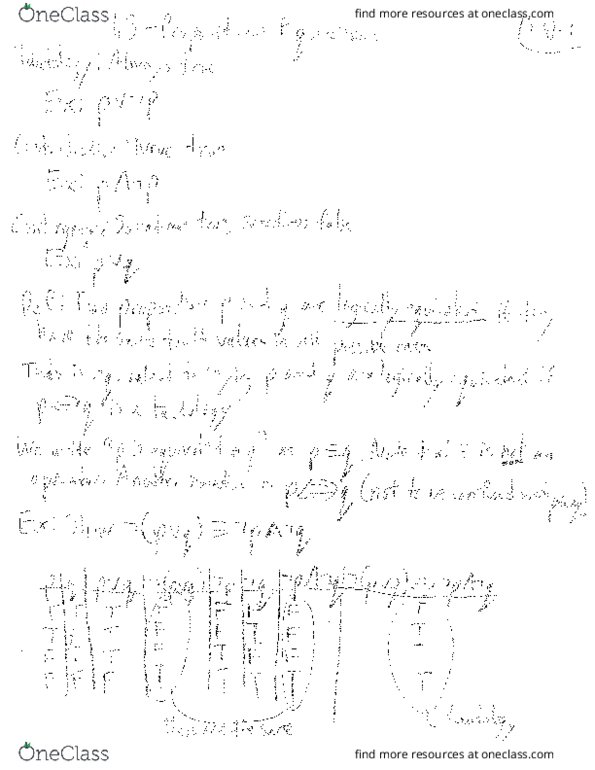 OneClass
find more resources at oneclass.com
1.3 - Propositional Equivalences
Tautology: Always true
Ex: p∨¬p
Contradiction: Never true
Ex: p∧¬p
Contingency: Sometimes true, sometimes false
Ex: p∨q
Def: Two propositions p and q are logically equivalent if they
have the same truth values in all possible cases
This is equivalent to saying p and q are logically equivalent if
p↔q is a tautology
We write "p is equivalent to q" as p≡q. Note that ≡ is not an
operator. Another notation is p⇔q (not to be confused with p↔q)
Ex: Show ¬(p∨q) ≡ ¬p∧¬q
p q p∨q ¬(p∨q) ¬p ¬q ¬p∧¬q ¬(p∨q)↔¬p∧¬q
T T T F F F F T
T F T F F T F T
F T T F T F F T
F F F T T T T T
tautology
OneClass
find more resources at oneclass.com